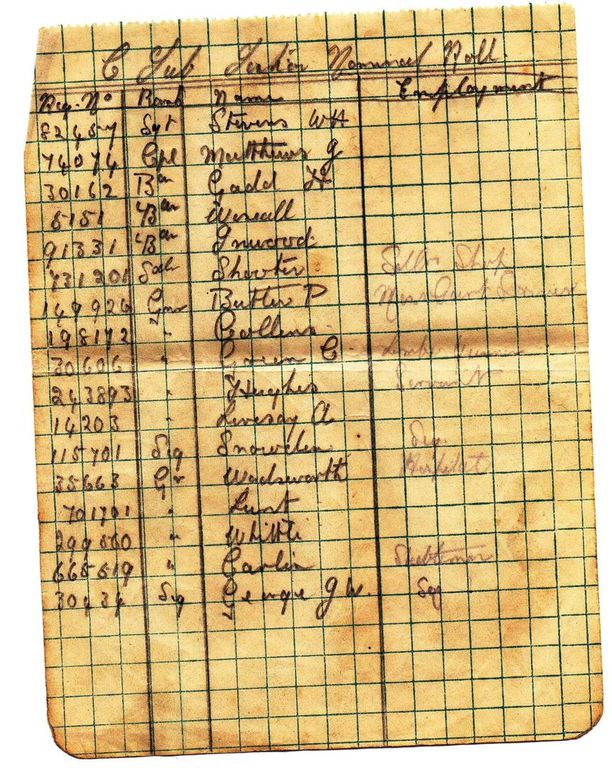 C Sub Section Nominal Roll
Reg. No Rank Name Employment
82457 Sgt Stevens W H
74074 Cpl Matthews G
30162 Br Gadd H
5151 Br
91331 Br Inwood
731201 Shooter
149926 Gnr Butler P
198172 " Collins
30606 " Green C
243893 " Hughes Servant
14203 " Livesay A
115701 Sig Snowden Sig.
35663 Gr Wadsworth
701791 " Lunt
299560 " Whittle
665519 " Carlin
30434 Sig George J W. Sig